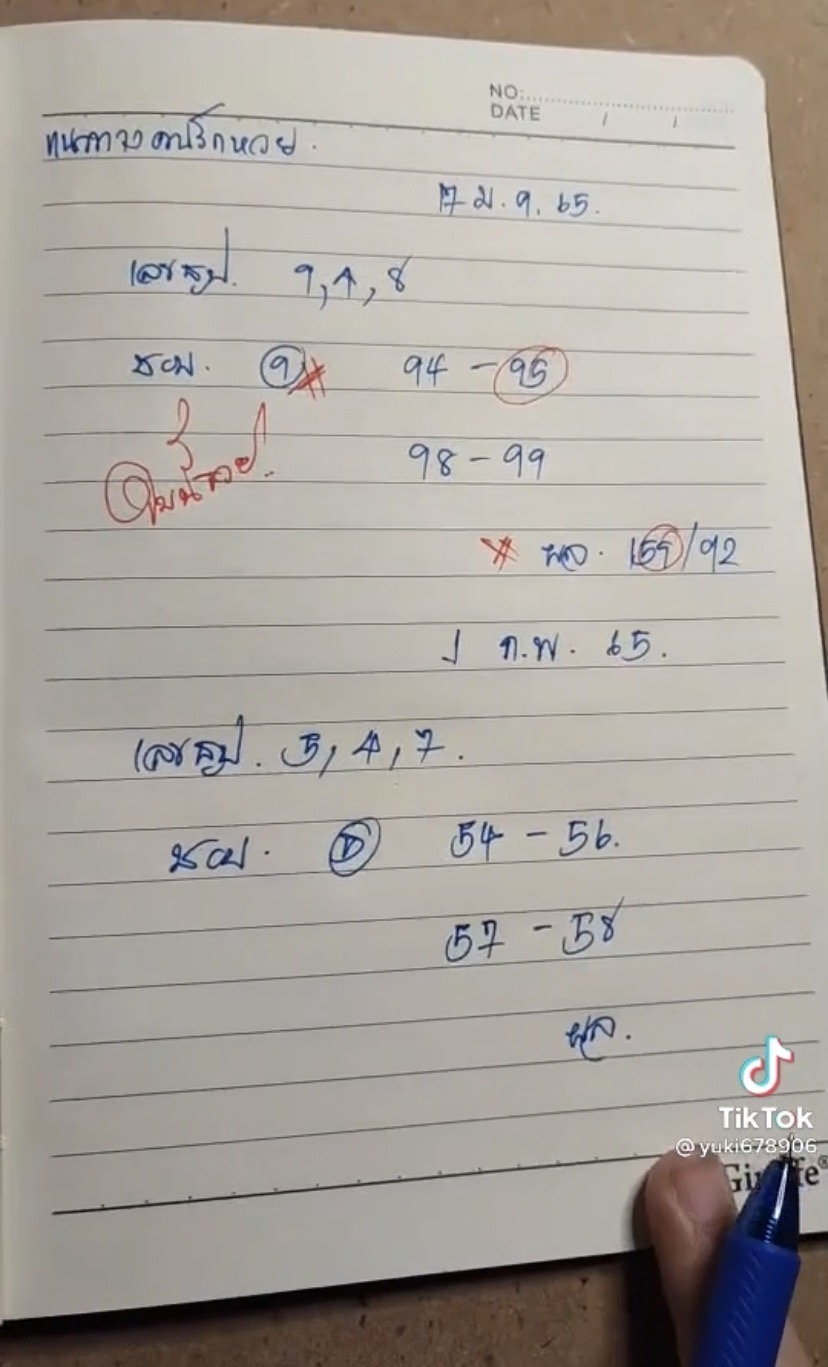 NO:
DATE / /
หนทางคนรักหวย.
17 ม.ค. 65.
เลขธูป. 9,4,8
ชอบ. 9 94 - 95
98 - 99
ผล. 159/92
1 ก.พ. 65.
เลขธูป. 5,4,7.
ชอบ. 5 54 - 56.
57 - 58
ผล.
TikTok
@yuki678906